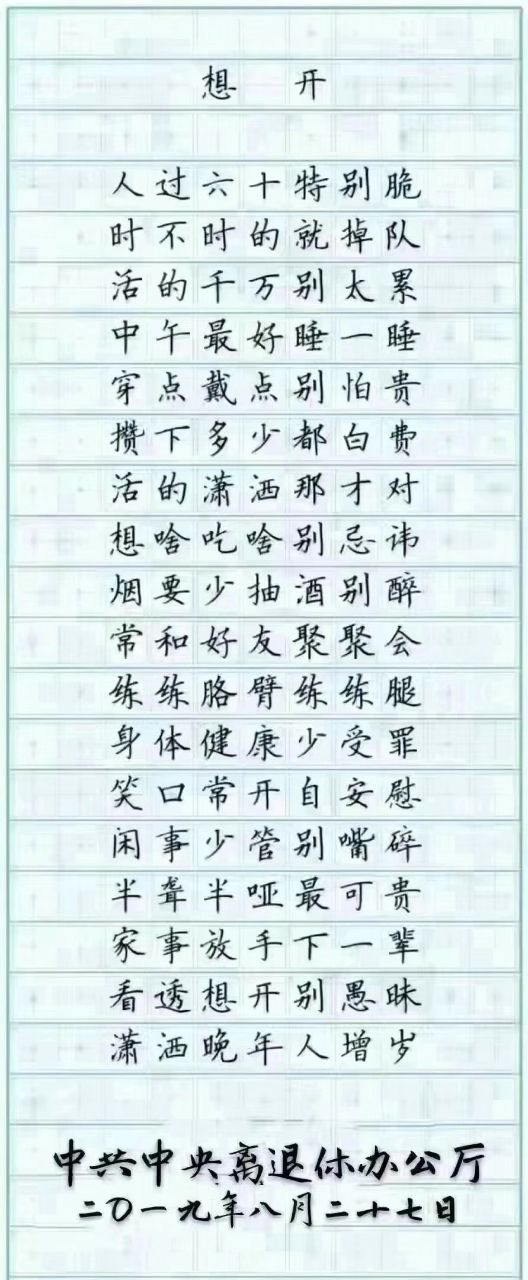 想 开
人过六十特别脆
时不时的就掉队
活的千万别太累
中午最好睡一睡
穿点戴点别怕贵
攒下多少都白费
活的潇洒那才对
想啥吃啥别忌讳
烟要少抽酒别醉
常和好友聚聚会
练练胳臂练练腿
身体健康少受罪
笑口常开自安慰
闲事少管别嘴碎
半聋半哑最可贵
家事放手下一辈
看透想开别愚昧
潇洒晚年人增岁
中共中央离退休办公厅
二〇一九年八月二十七日